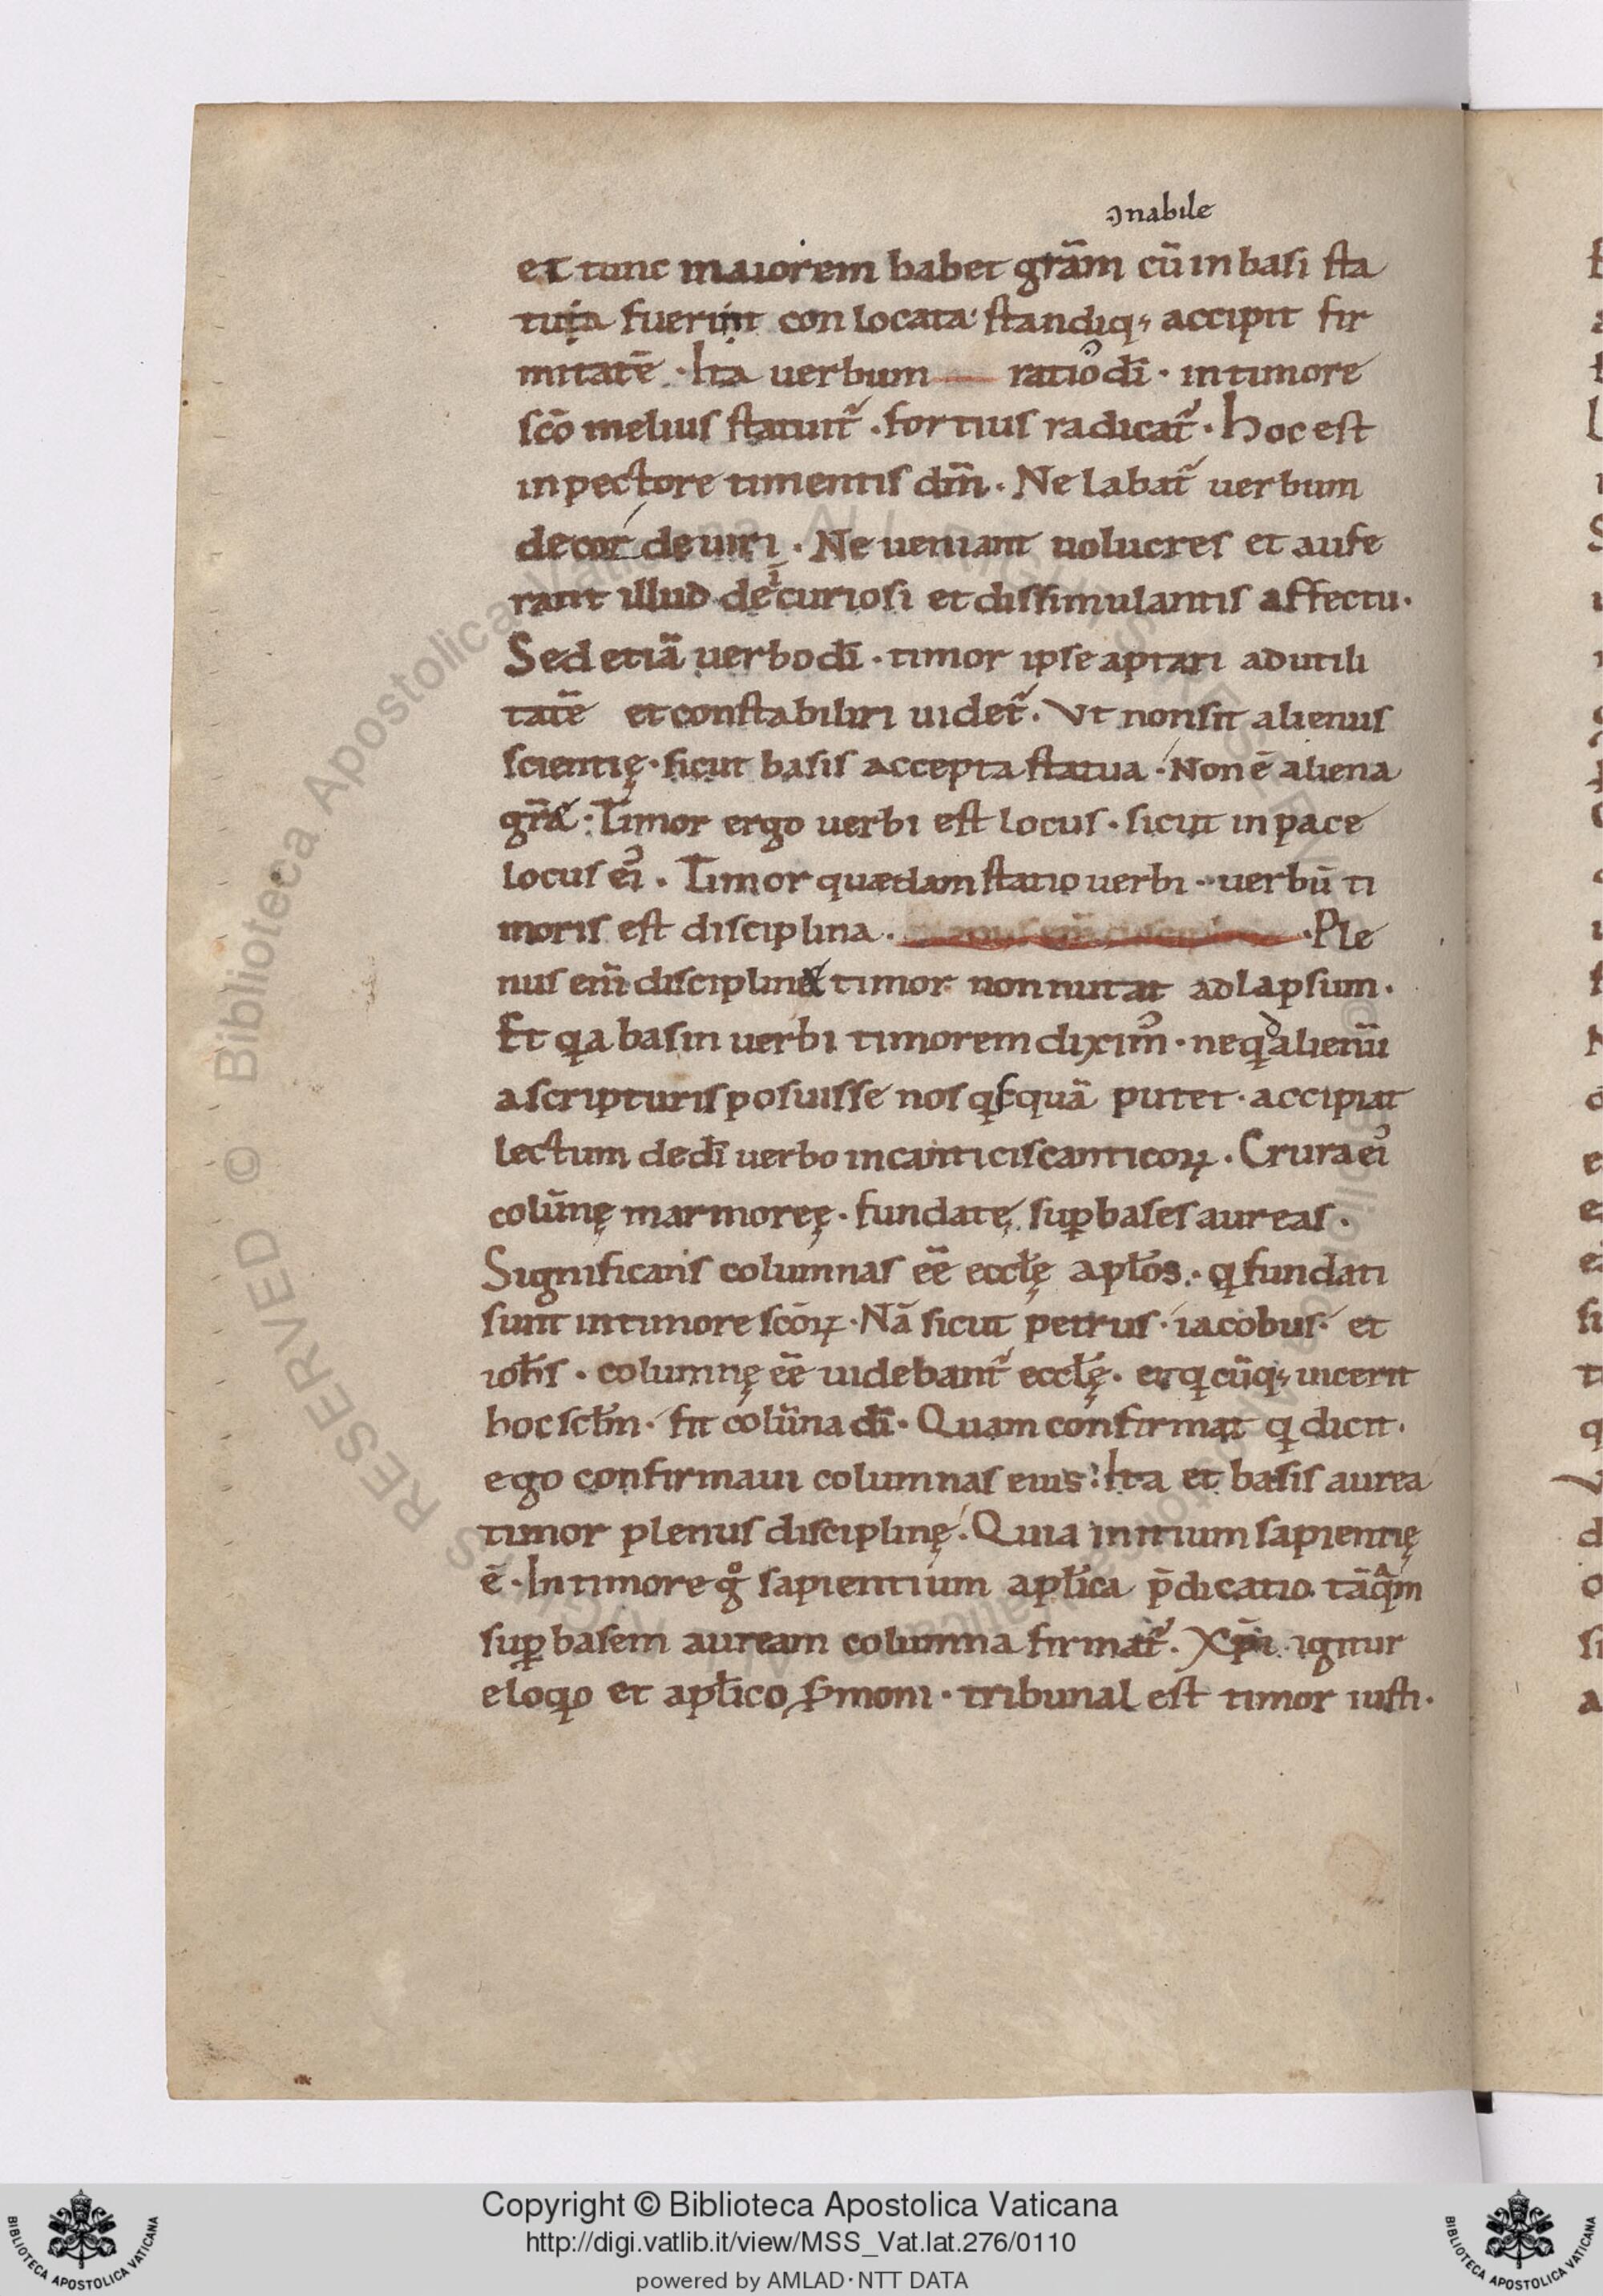 ɔnabile
et tunc maiorem habet grãm cũ in basi sta
tuta fuerint con locata· standiq; accipit fir
mitatẽ · Ita uerbum ratio dĩ · in timore
scõ melius statuit᷑ · fortius radicat᷑ · hoc est
in pectore timentis dm̃ · Ne labat᷑ uerbum
de corde uiri · Ne ueniant uolucres et aufe
rant illud de ĩcuriosi et dissimulantis affectu·
Sed etiã uerbo dĩ · timor ipse aptari ad utili
tatẽ et constabiliri uidet᷑ · Vt non sit alienus
scientię · sicut basis accepta statua · Non ẽ aliena
gr̃a · Timor ergo uerbi est locus · sicut in pace
locus ei᾽ · Timor quædam statio uerbi · uerbũ ti
moris est disciplina · Ple
nus em̃ disciplinæ timor non nutat ad lapsum ·
Et qa basin uerbi timorem dixim᾽ · ne qd alienũ
a scripturis posuisse nos qsquã putet · accipiat
lectum de dĩ uerbo in canticis canticoꝝ · Crura ei᾽
colũnę marmoreę · fundatę sup bases aureas ·
Significans columnas eẽ eccłę apłos · q fundati
sunt in timore scõꝝ · Nã sicut petrus · iacobus · et
ioħs · columnę eẽ uidebant᷑ eccłę · et q cũq; uicerit
hoc scłm · fit colũna dĩ · Quam confirmat q dicit ·
ego confirmaui columnas eius : Ita et basis aurea
timor plenus disciplinę · Quia initium sapientię
ẽ · In timore gº sapientium apłica p̃dicatio tãqᵃm
suꝑ basem auream columna firmat᷑ · Xp̃i igitur
eloqio et apłico s̃moni · tribunal est timor iusti ·
Copyright © Biblioteca Apostolica Vaticana
http://digi.vatlib.it/view/MSS_Vat.lat.276/0110
powered by AMLAD·NTT DATA